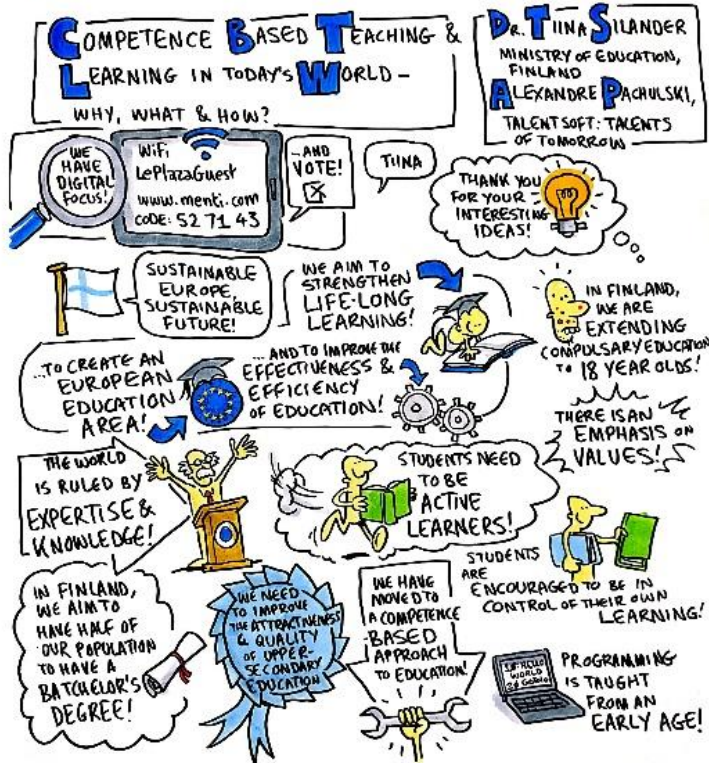 COMPETENCE BASED TEACHING &
LEARNING IN TODAY'S WORLD –
WHY, WHAT & HOW?
DR. TIINA SILANDER
MINISTRY OF EDUCATION,
FINLAND
ALEXANDRE PACHULSKI,
TALENTSOFT: TALENTS
OF TOMORROW
WE
HAVE
DIGITAL
FOCUS!
WiFi
LePlazaGuest
www.menti.com
CODE: 52 71 43
...AND
VOTE!
TIINA
THANK YOU
FOR YOUR
INTERESTING
IDEAS!
SUSTAINABLE
EUROPE,
SUSTAINABLE
FUTURE!
WE AIM TO
STRENGTHEN
LIFE-LONG
LEARNING!
IN FINLAND,
WE ARE
EXTENDING
COMPULSARY EDUCATION
TO 18 YEAR OLDS!
...TO CREATE AN
EUROPEAN
EDUCATION
AREA!
... AND TO IMPROVE THE
EFFECTIVENESS &
EFFICIENCY
OF EDUCATION!
THERE IS AN
EMPHASIS ON
VALUES!
THE WORLD
IS RULED BY
EXPERTISE &
KNOWLEDGE!
STUDENTS NEED
TO BE
ACTIVE
LEARNERS!
STUDENTS
ARE
ENCOURAGED TO BE IN
CONTROL OF THEIR OWN
LEARNING!
IN FINLAND,
WE AIM TO
HAVE HALF OF
OUR POPULATION
TO HAVE A
BATCHELOR'S
DEGREE!
WE NEED
TO IMPROVE
THE ATTRACTIVENESS
& QUALITY
OF UPPER-
SECONDARY
EDUCATION
WE HAVE
MOVED TO
A COMPETENCE
-BASED
APPROACH
TO EDUCATION!
HELLO
WORLD
PROGRAMMING
IS TAUGHT
FROM AN
EARLY AGE!